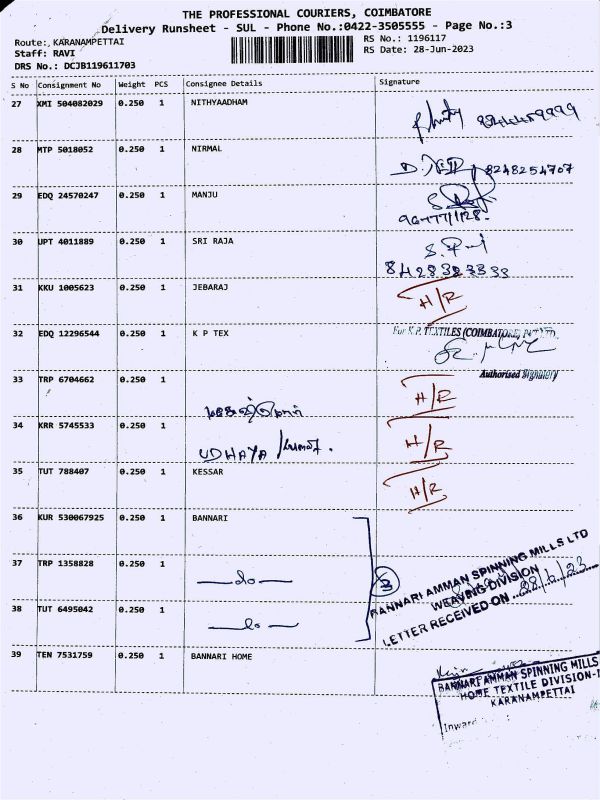 THE PROFESSIONAL COURIERS, COIMBATORE
Delivery Runsheet - SUL - Phone No.:0422-3505555 - Page No.:3
Route: KARANAMPETTAI
Staff: RAVI
DRS No.: DCJB119611703
RS No.: 1196117
RS Date: 28-Jun-2023
S No Consignment No Weight PCS Consignee Details Signature
27 XMI 504082029 0.250 1 NITHYAADHAM
28 MTP 5018052 0.250 1 NIRMAL
8248254707
29 EDQ 24570247 0.250 1 MANJU
30 UPT 4011889 0.250 1 SRI RAJA
8428323333
31 KKU 1005623 0.250 1 JEBARAJ
H/R
32 EDQ 12296544 0.250 1 K P TEX
For K.P. TEXTILES (COIMBATORE)
Authorised Signatory
33 TRP 6704662 0.250 1
H/R
34 KRR 5745533 0.250 1 UDHAYA
H/R
35 TUT 788407 0.250 1 KESSAR
H/R
36 KUR 530067925 0.250 1 BANNARI
37 TRP 1358828 0.250 1 —do—
3
BANNARI AMMAN SPINNING MILLS LTD
WEAVING DIVISION
LETTER RECEIVED ON
38 TUT 6495042 0.250 1 —do—
39 TEN 7531759 0.250 1 BANNARI HOME
BANNARI AMMAN SPINNING MILLS
HOME TEXTILE DIVISION-I
KARANAMPETTAI
Inward